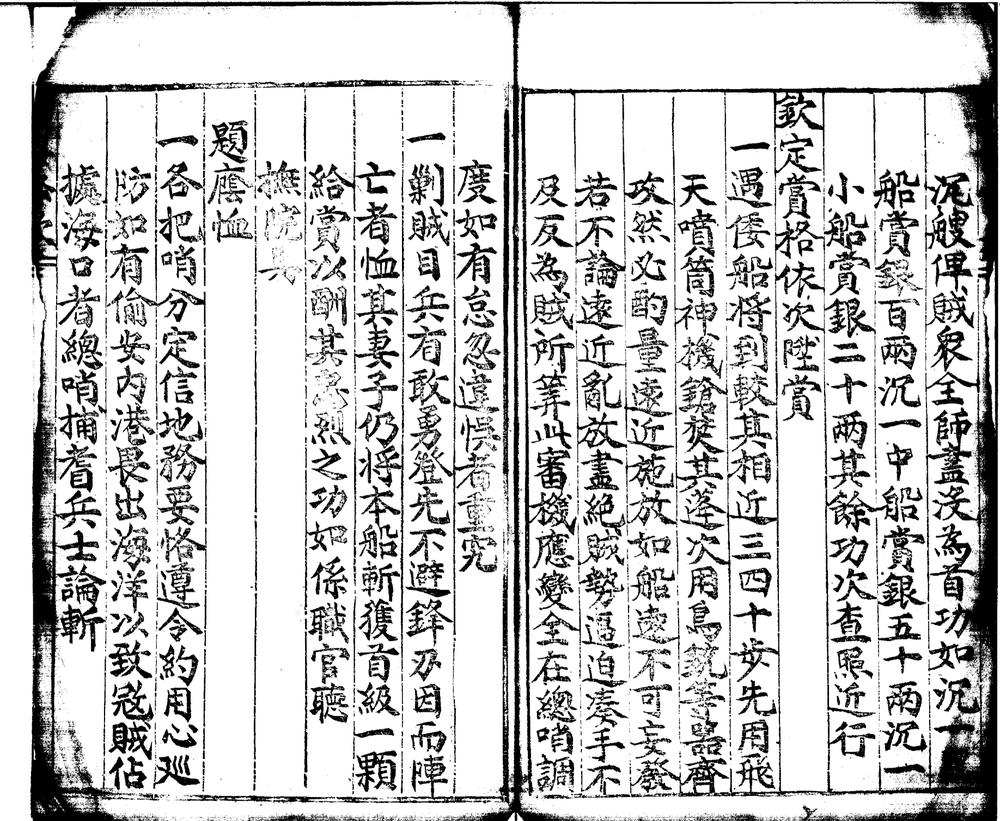 泥艘俾賊衆全師蓋没為首功如沉一
船賞銀百兩沉一中船賞銀五十兩沉一
小船賞銀二十兩其餘功次查照近行
欽定賞格依次陞賞
一遇倭船将到較其相近三四十步先用飛
天噴筒神機鎗焚其蓬次用鳥銃等器齊
攻然必酌量遠近施放如船遠不可妄發
若不論遠近亂放盡絕賊勢逼迫湊手不
及反為賊所筭此審機應變全在總哨調
度如有怠忽違悞者重究
一剿賊目兵有敢勇登先不避鋒刃因而陣
亡者恤其妻子仍将本船斬獲首級一顆
給賞以酬其忠烈之功如係職官聽
撫院具
題廕恤
一各把哨分定信地務要恪遵令約用心廵
防如有偷安内港畏出海洋以致冦賊佔
據海口者總哨捕耆兵士論斬